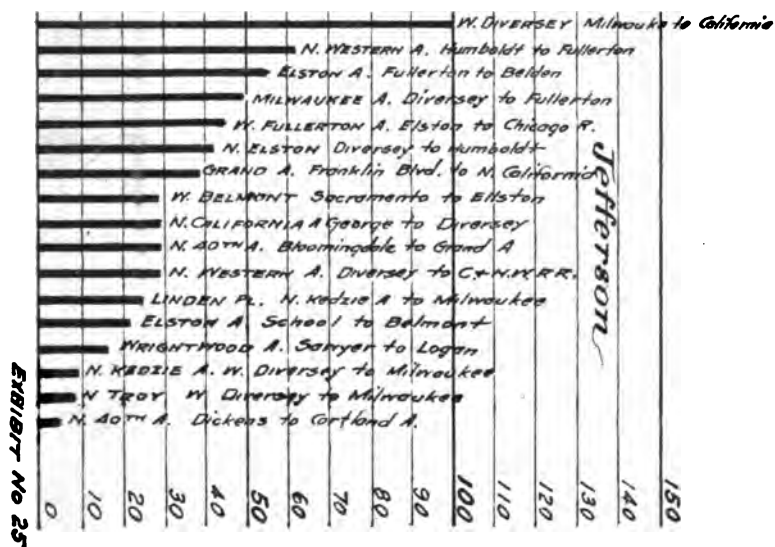 W. DIVERSEY Milwauke to California
N. WESTERN A. Humboldt to Fullerton
ELSTON A. Fullerton to Belden
MILWAUKEE A. Diversey to Fullerton
W. FULLERTON A. Elston to Chicago R.
N. ELSTON Diversey to Humboldt
GRAND A. Franklin Blvd. to N. California
W. BELMONT Sacramento to Ellston
N. CALIFORNIA A George to Diversey
N. 40TH A. Bloomingdale to Grand A
N. WESTERN A. Diversey to C.+N.W.R.R.
LINDEN PL. N. Kedzie A to Milwaukee
ELSTON A. School to Belmont
WRIGHTWOOD A. Sawyer to Logan
N. KEDZIE A. W. Diversey to Milwaukee
N TROY W Diversey to Milwaukee
N. 40TH A. Dickens to Cortland A.
Jefferson
0 10 20 30 40 50 60 70 80 90 100 110 120 130 140 150
EXHIBIT NO 25